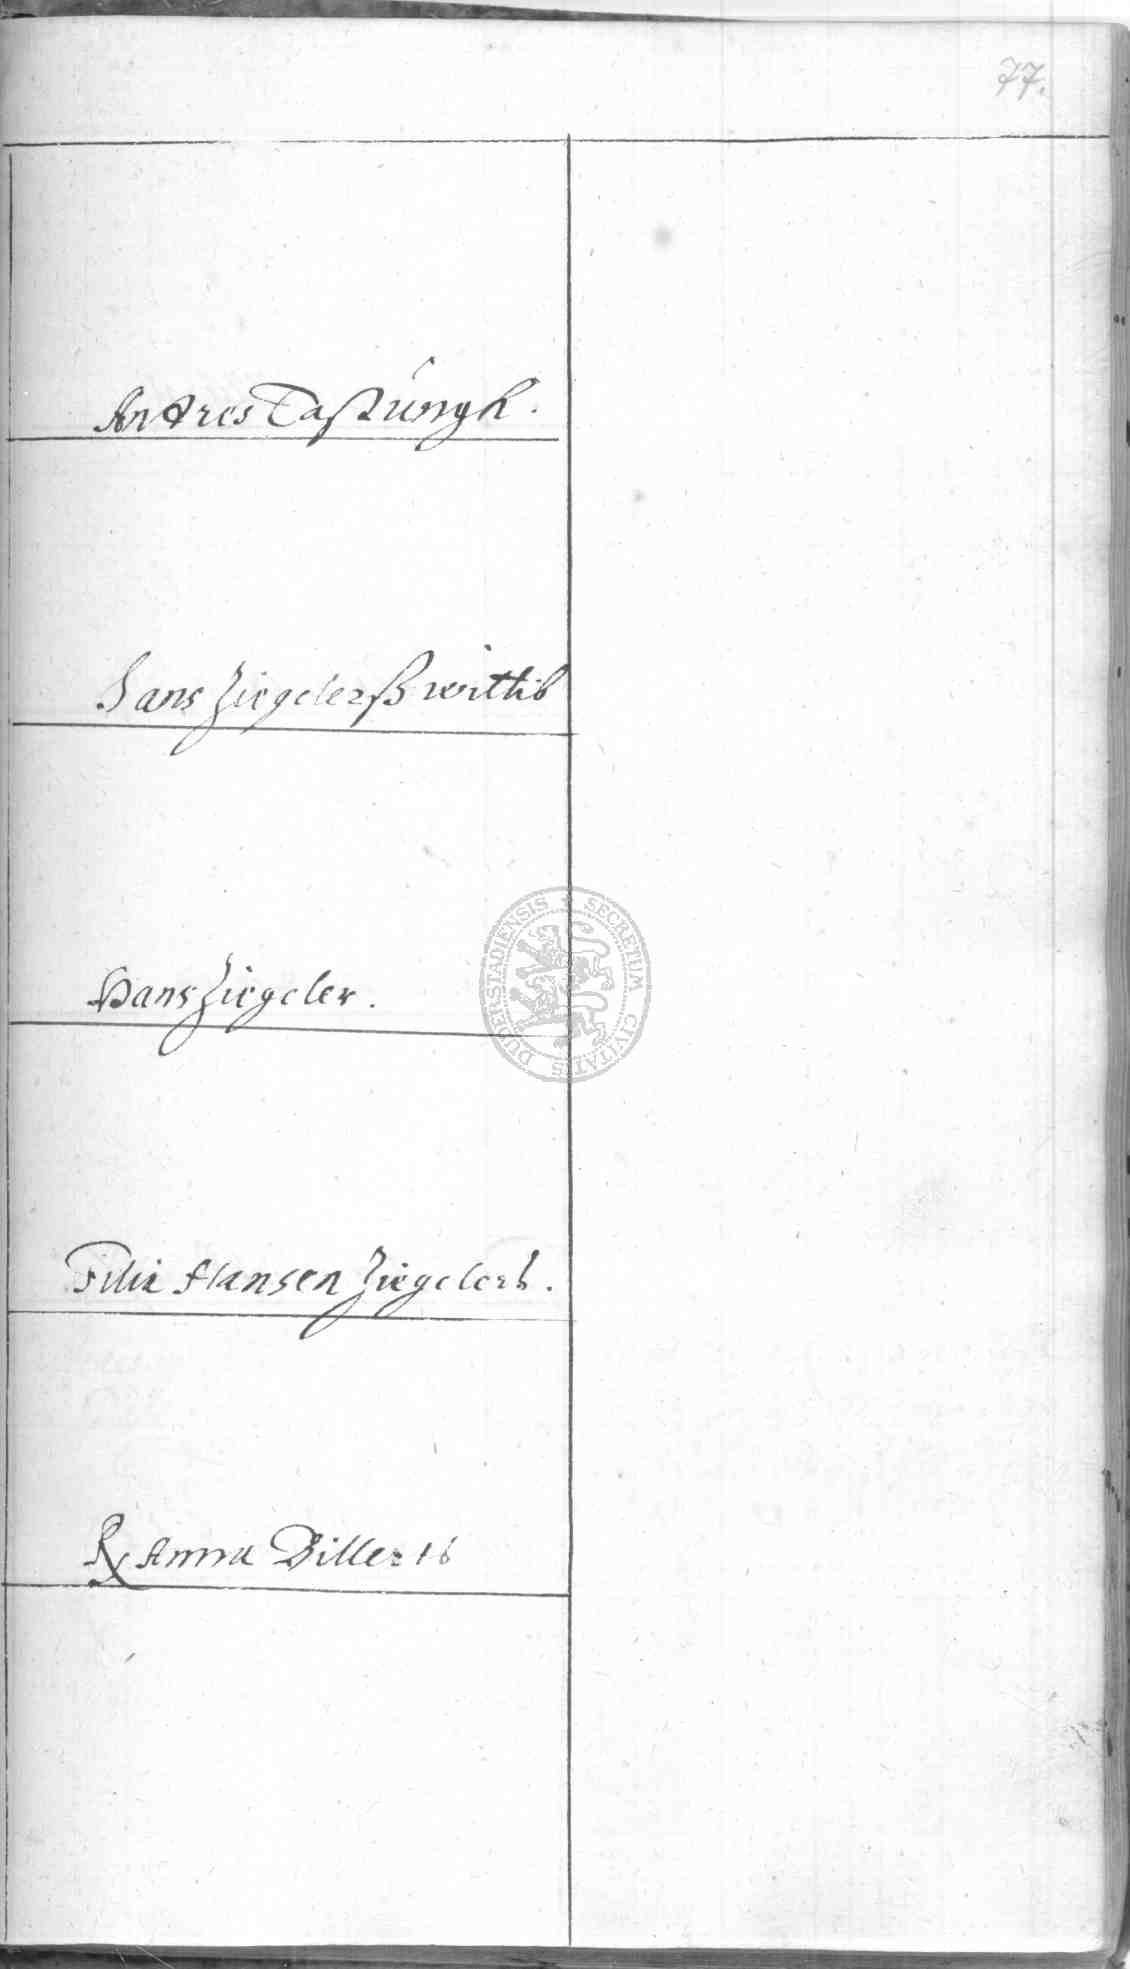 77.
Andres Tastungk.
Hans Ziegelerß wittib
Hans Ziegeler.
Filia Hansen Ziegelers.
Rx Anna Billerts
SECRETUM CIVITATIS DUDERSTADIENSIS